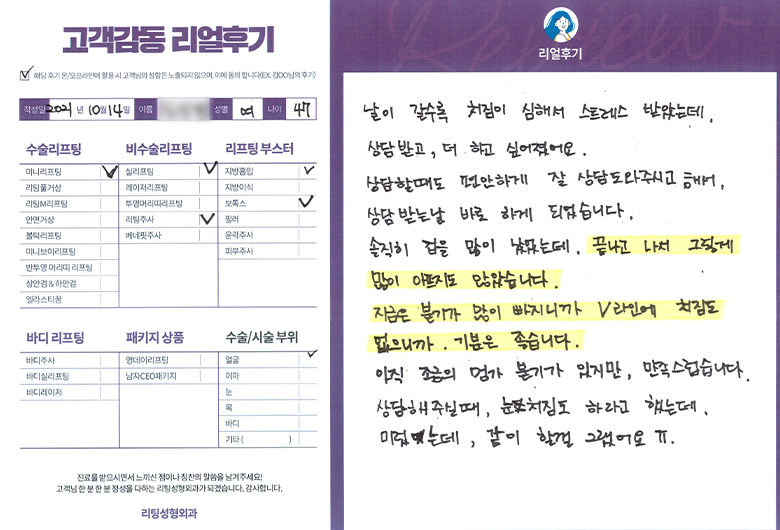 고객감동 리얼후기
해당 후기 온/오프라인에 활용 시 고객님의 성함은 노출되지 않으며, 이에 동의 합니다(EX. 김OO님의 후기)
작성일 2021년 10월 14일 이름 성별 여 나이 47
수술리프팅
미니리프팅
리팅풀거상
리팅M리프팅
안면거상
볼턱리프팅
미니브이리프팅
반투명 머리띠 리프팅
상안검 & 하안검
엘라스티꿈
비수술리프팅
실리프팅
레이저리프팅
투명머리띠리프팅
리팅주사
베네핏주사
리프팅 부스터
지방흡입
지방이식
보톡스
필러
윤곽주사
피부주사
바디 리프팅
바디주사
바디실리프팅
바디레이저
패키지 상품
영데이리프팅
남자CEO패키지
수술/시술 부위
얼굴
이마
눈
목
바디
기타 ( )
진료를 받으시면서 느끼신 점이나 칭찬의 말씀을 남겨주세요!
고객님 한 분 한 분 정성을 다하는 리팅성형외과가 되겠습니다. 감사합니다.
리팅성형외과
Review
리얼후기
날이 갈수록 처짐이 심해서 스트레스 받았는데,
상담받고, 더 하고 싶어졌어요.
상담할때도 편안하게 잘 상담도와주시고 해서,
상담 받는날 바로 하게 되었습니다.
솔직히 겁을 많이 냈었는데, 끝나고 나서 그렇게
많이 아프지도 않았습니다.
지금은 붓기가 많이 빠지니까 V라인에 처짐도
없으니까. 기분은 좋습니다.
아직 조금의 멍가 붓기가 있지만, 만족스럽습니다.
상담해주실때, 눈처짐도 하라고 했는데,
미뤘는데, 같이 할걸 그랬어요 ㅠ.